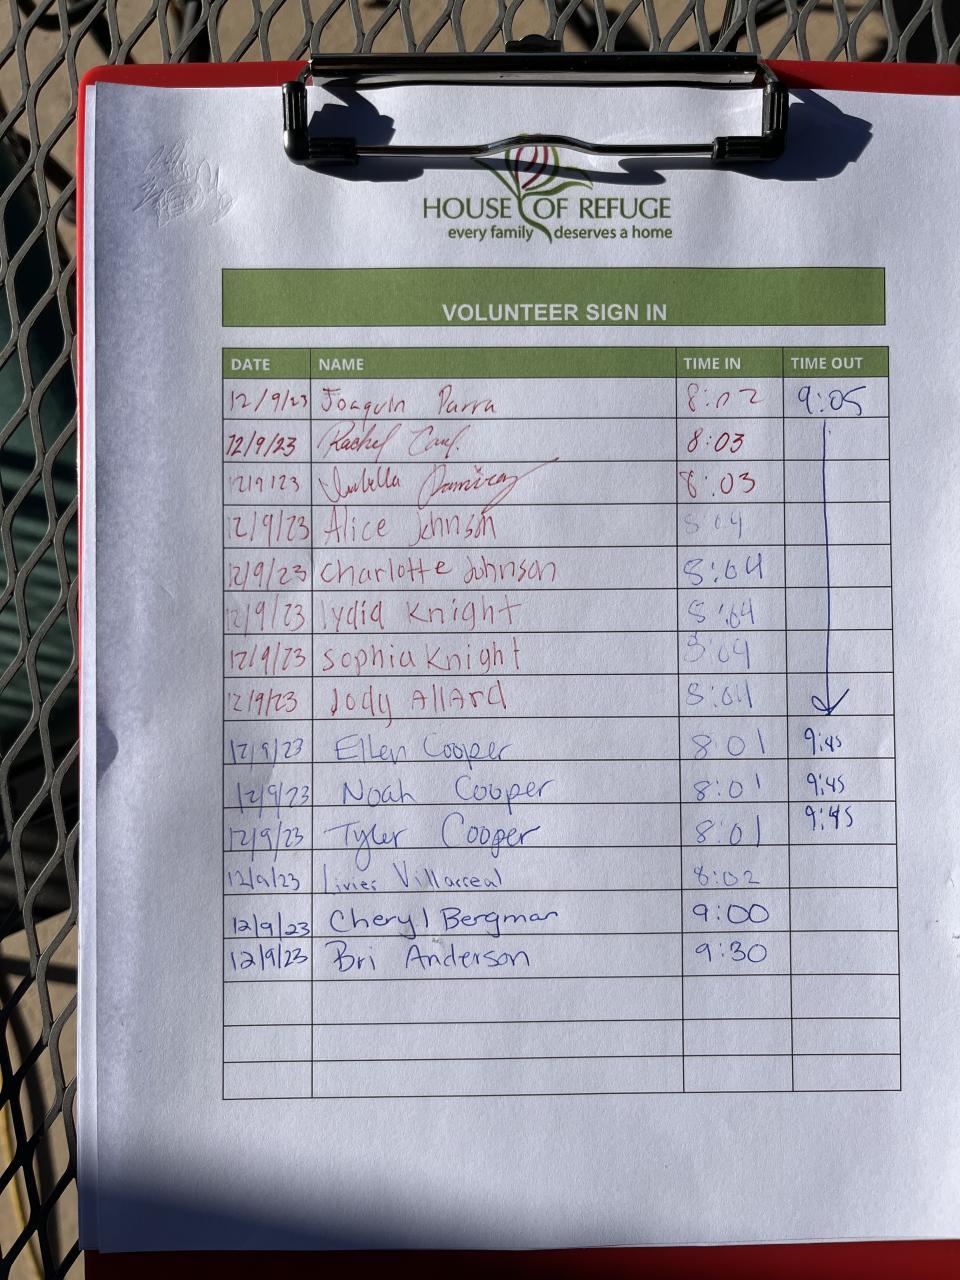 HOUSE OF REFUGE
every family deserves a home
VOLUNTEER SIGN IN
DATE NAME TIME IN TIME OUT
12/9/23 Joaquin Parra 8:02 9:05
12/9/23 Rachel 8:03
12/9/23 8:03
12/9/23 Alice Johnson 8:04
12/9/23 Charlotte Johnson 8:04
12/9/23 lydia Knight 8:04
12/9/23 sophia Knight 8:04
12/9/23 Jody Allard 8:04
12/9/23 Ellen Cooper 8:01 9:45
12/9/23 Noah Cooper 8:01 9:45
12/9/23 Tyler Cooper 8:01 9:45
12/9/23 Livier Villarreal 8:02
12/9/23 Cheryl Bergman 9:00
12/9/23 Bri Anderson 9:30